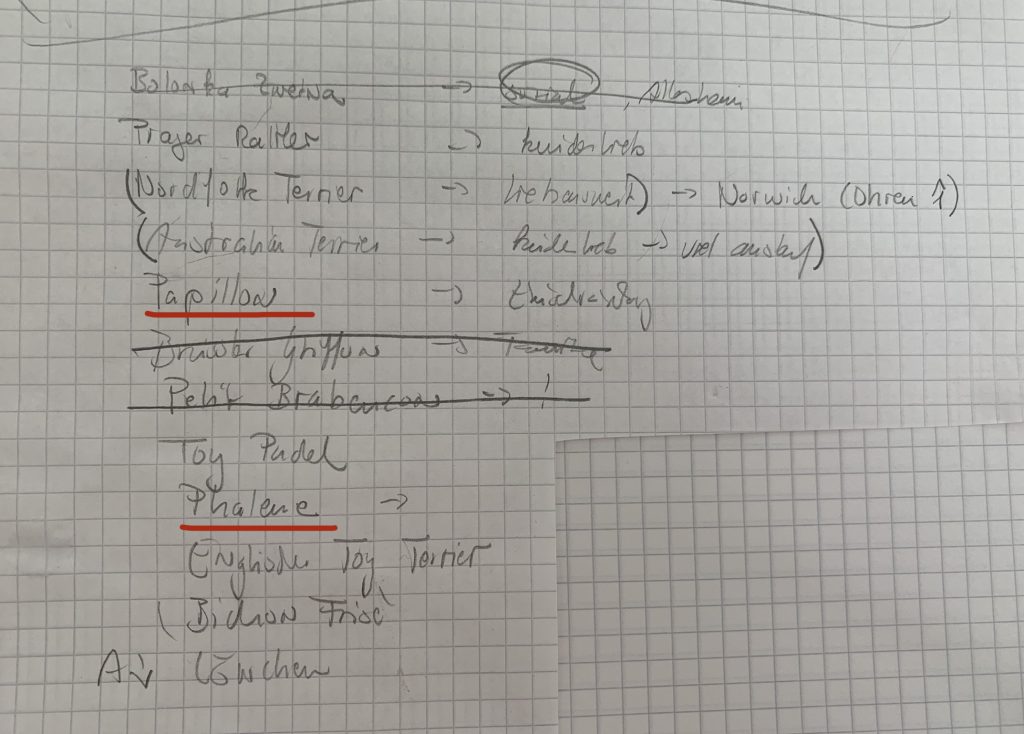 Bolonka Zwetna →
Prager Rattler → kinderlieb
(Nordfolk Terrier → liebenswert) → Norwich (Ohren ↑)
(Australian Terrier → kinderlieb → viel auslauf)
Papillon →
Brüssler Griffon →
Petit Brabancon → !
Toy Pudel
Phalene →
Englische Toy Terrier
(Bichon Frisé
Löwchen